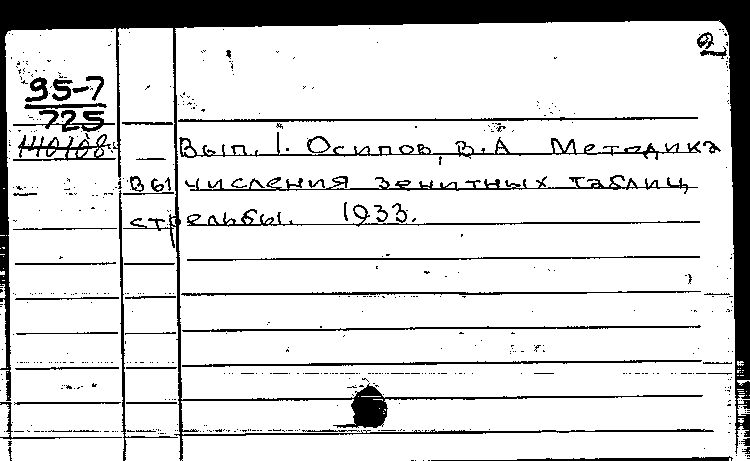 2
95-7
725
140108
Вып. 1. Осипов, В.А Методика
вычисления зенитных таблиц
стрельбы. 1933.